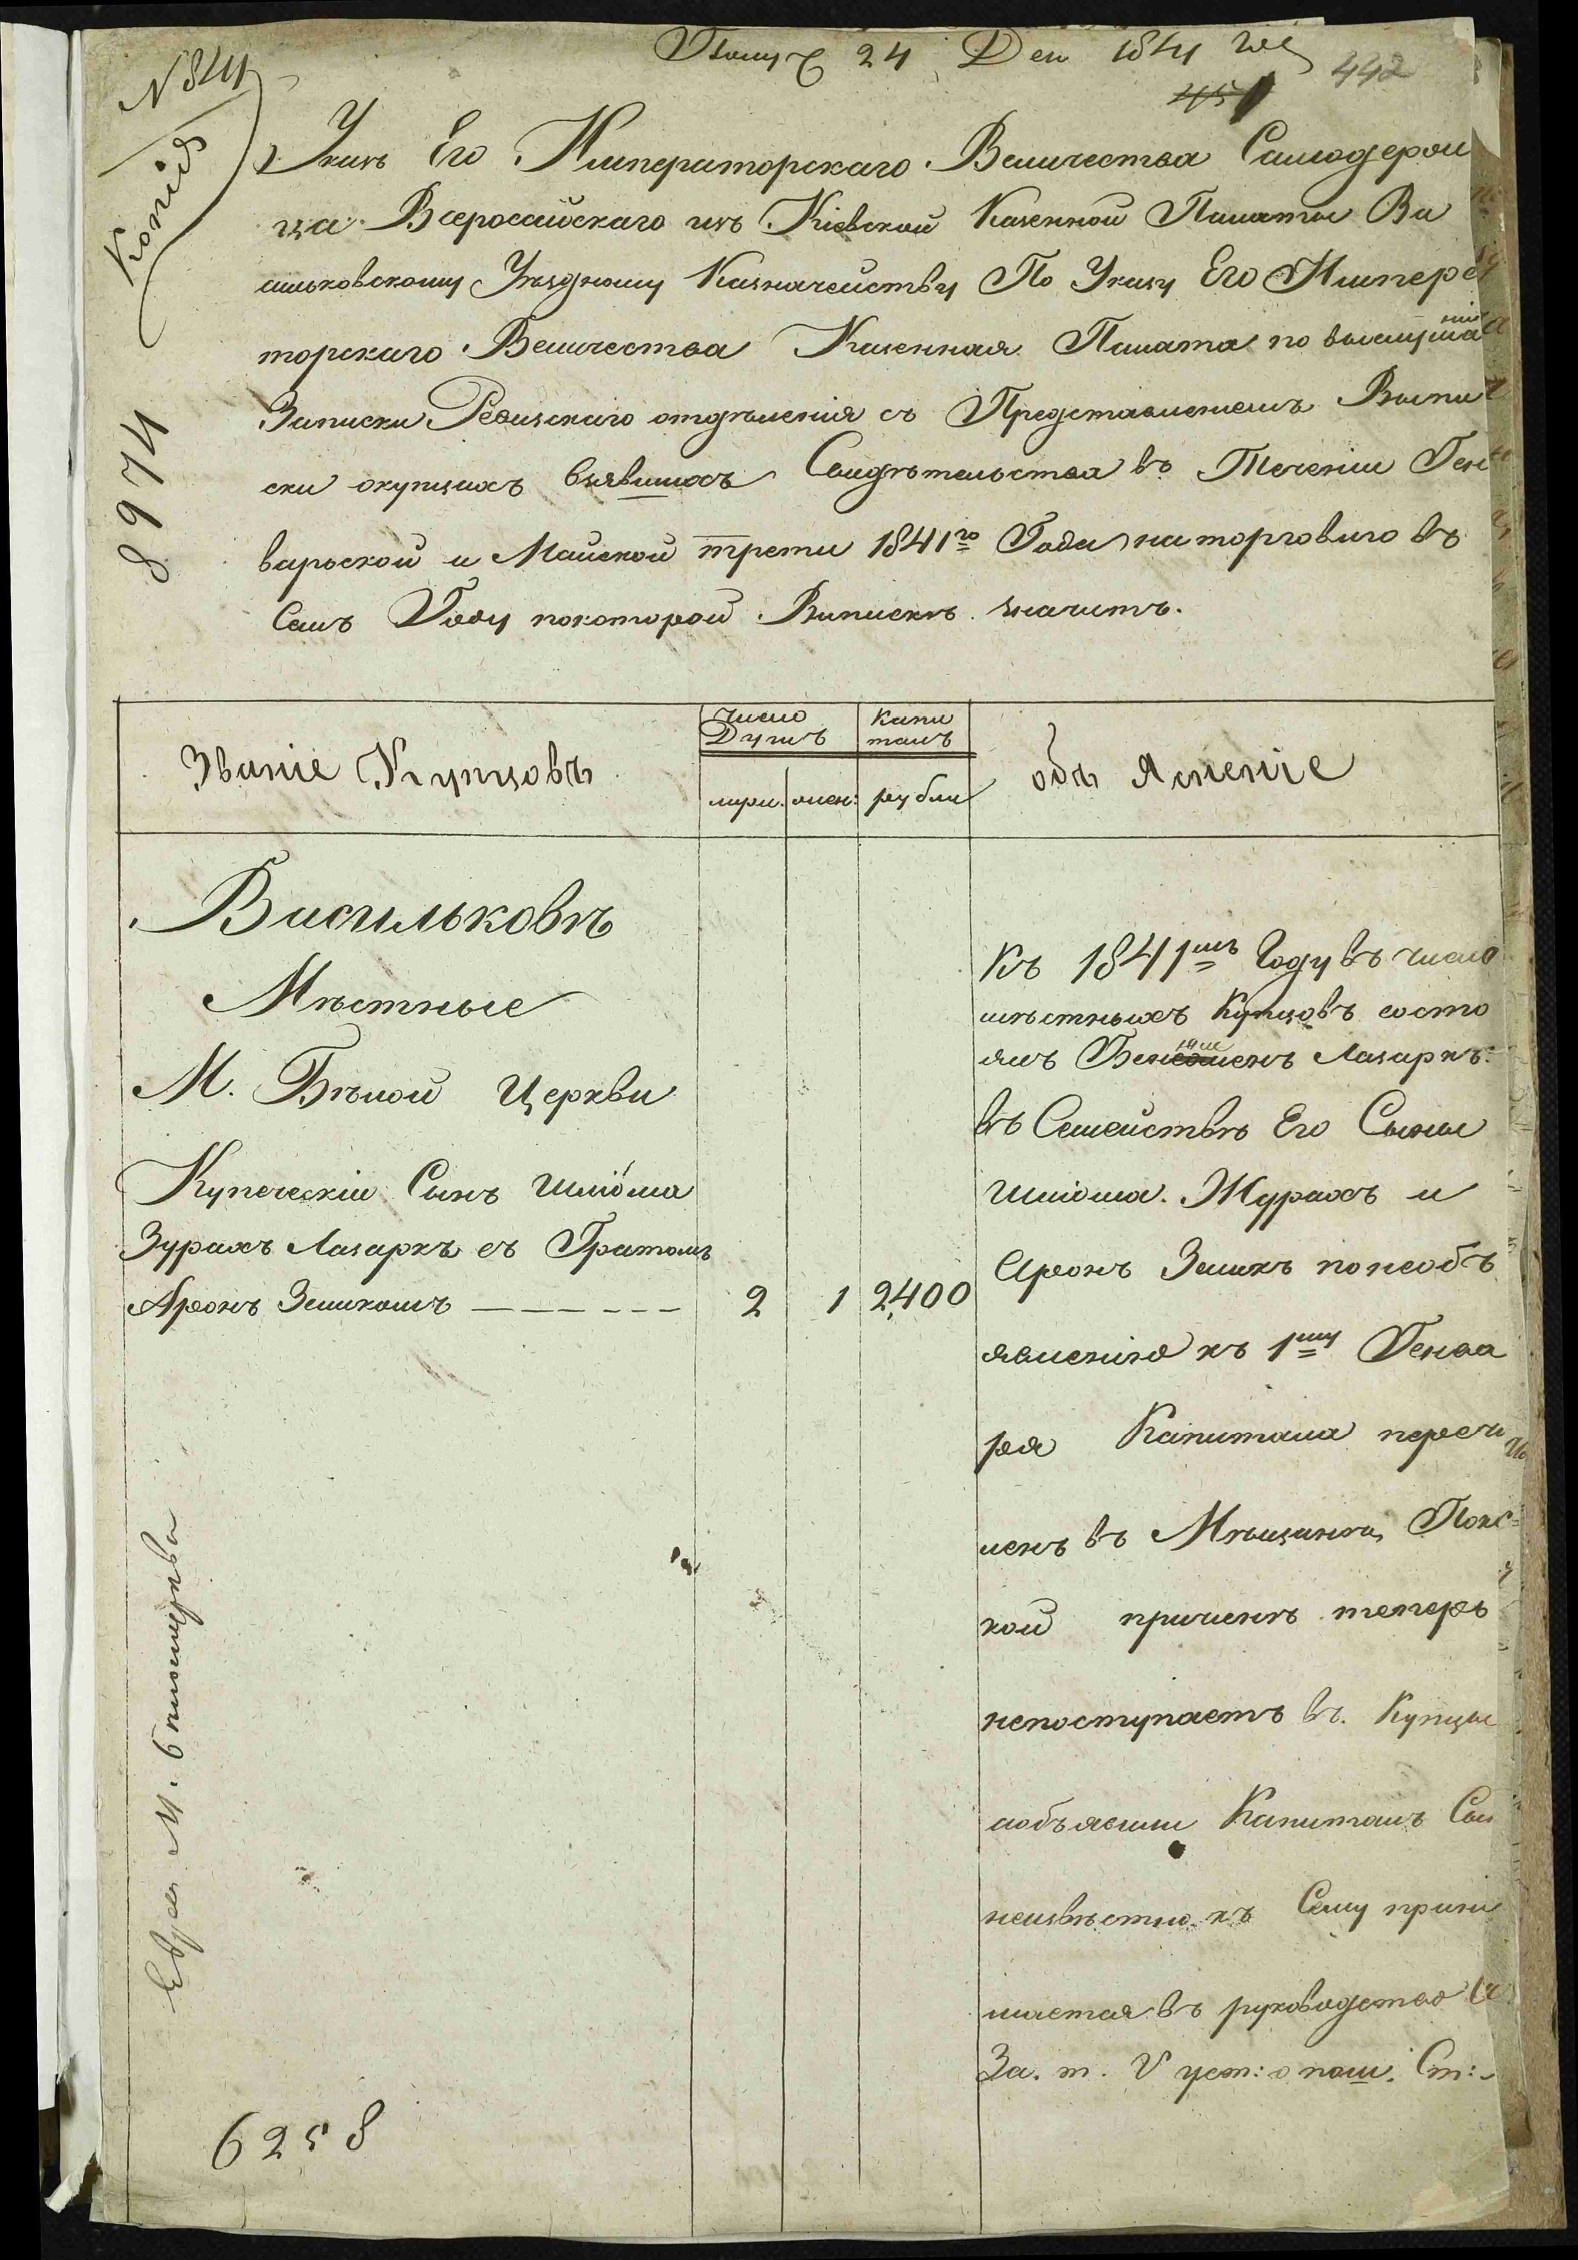 24 Ден 1841 год
442
451
N 841
Копія
8974
Указъ Его Императорскаго Величества Самодерж
ца Всеросийскаго изъ Кіевской Казенной Палаты Ва
сильковскому Уѣздному Казначейству По Указу Его Импера
торскаго Величества Казенная Палата по выслушаніи
Записки Ревизскаго отдѣленія съ Представленіемъ Выпи
ски окупцахъ взявшихъ Свидѣтельства въ Теченіи Ген
варьской и Майской трети 1841го Года на торговлю въ
Семъ Году покоторой Выпискѣ значитъ.
Званіе Купцовъ
число Душъ
Капи талъ
объ Ясненіе
муж. жен: рубли
Васильковъ
Мѣстные
М. Бѣлой Церкви
Купеческій Сынъ Шліома
Зурахъ Лазаркъ съ Братомъ
Аронъ Зеликомъ — — — — — — 2 1 2,400
Къ 1841мъ Году въ число
мѣстныхъ Купцовъ состо
ялъ Лазаркъ.
въ Семействѣ Его Сыны
Шліома. Журахъ и
Аронъ Зеликъ понеобъ
явленію къ 1му Генва
ря Капитала перечи
ленъ въ Мѣщане, Пока
кой причинѣ теперь
непоступаетъ въ Купцы
аобъявили Капиталъ Сы
неизвѣстно къ Сему прини
мается въ руководство
За. т. V уст: о пош. Ст:
Евреи М. бѣлоцерква
6258